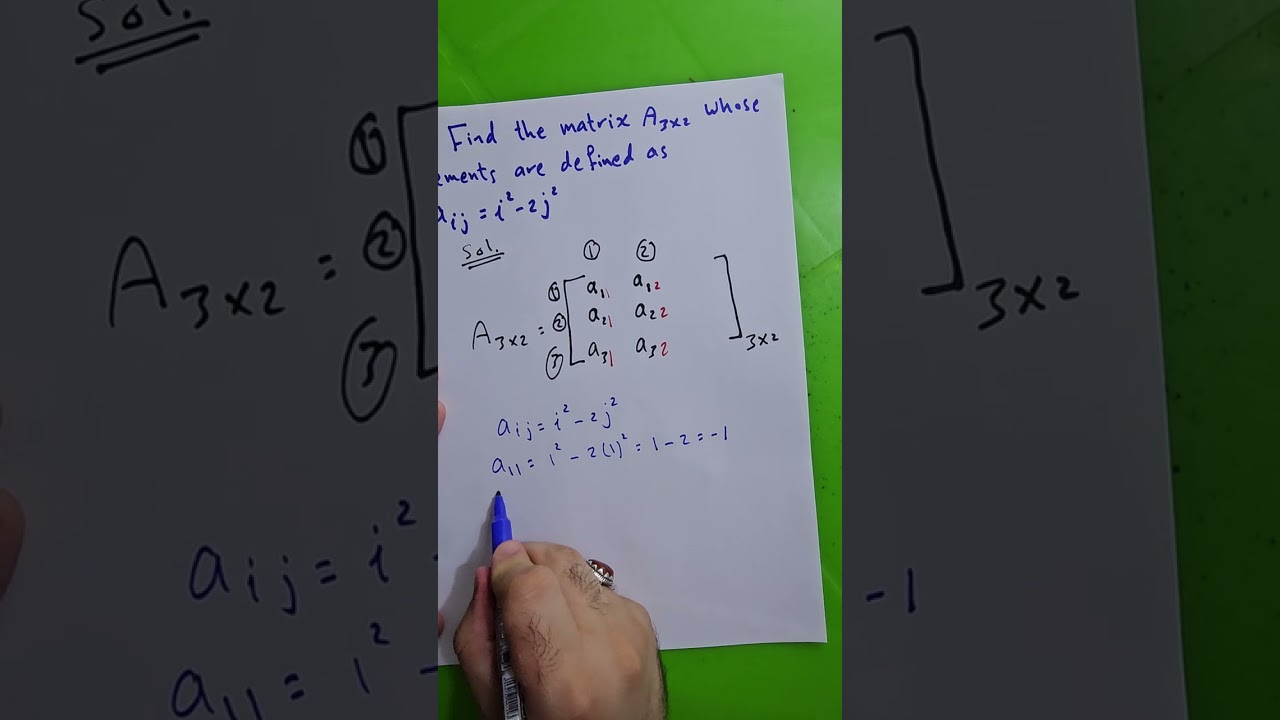 Find the matrix A₃ₓ₂ whose
ements are defined as
aᵢⱼ = i² - 2j²
Sol.
① ②
① a₁₁ a₁₂
A₃ₓ₂ = ② a₂₁ a₂₂
③ a₃₁ a₃₂
3x2
aᵢⱼ = i² - 2j²
a₁₁ = 1² - 2(1)² = 1 - 2 = -1